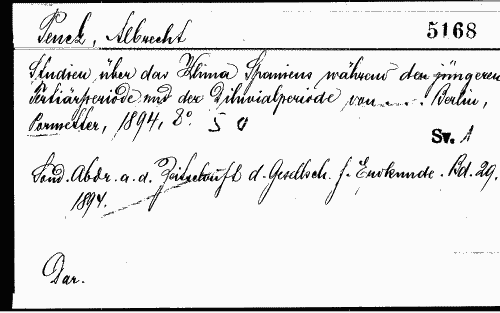 Penck, Albrecht
5168
Studien über das Klima Spaniens während der jüngeren
Tertiärperiode und der Diluvialperiode von ..... Berlin,
Pormetter, 1894, 8°. 5
Sv. A
Sond. Abdr. a. d. Zeitschrift d. Gesellsch. f. Erdkunde. Bd. 29.
1894.
Dar.